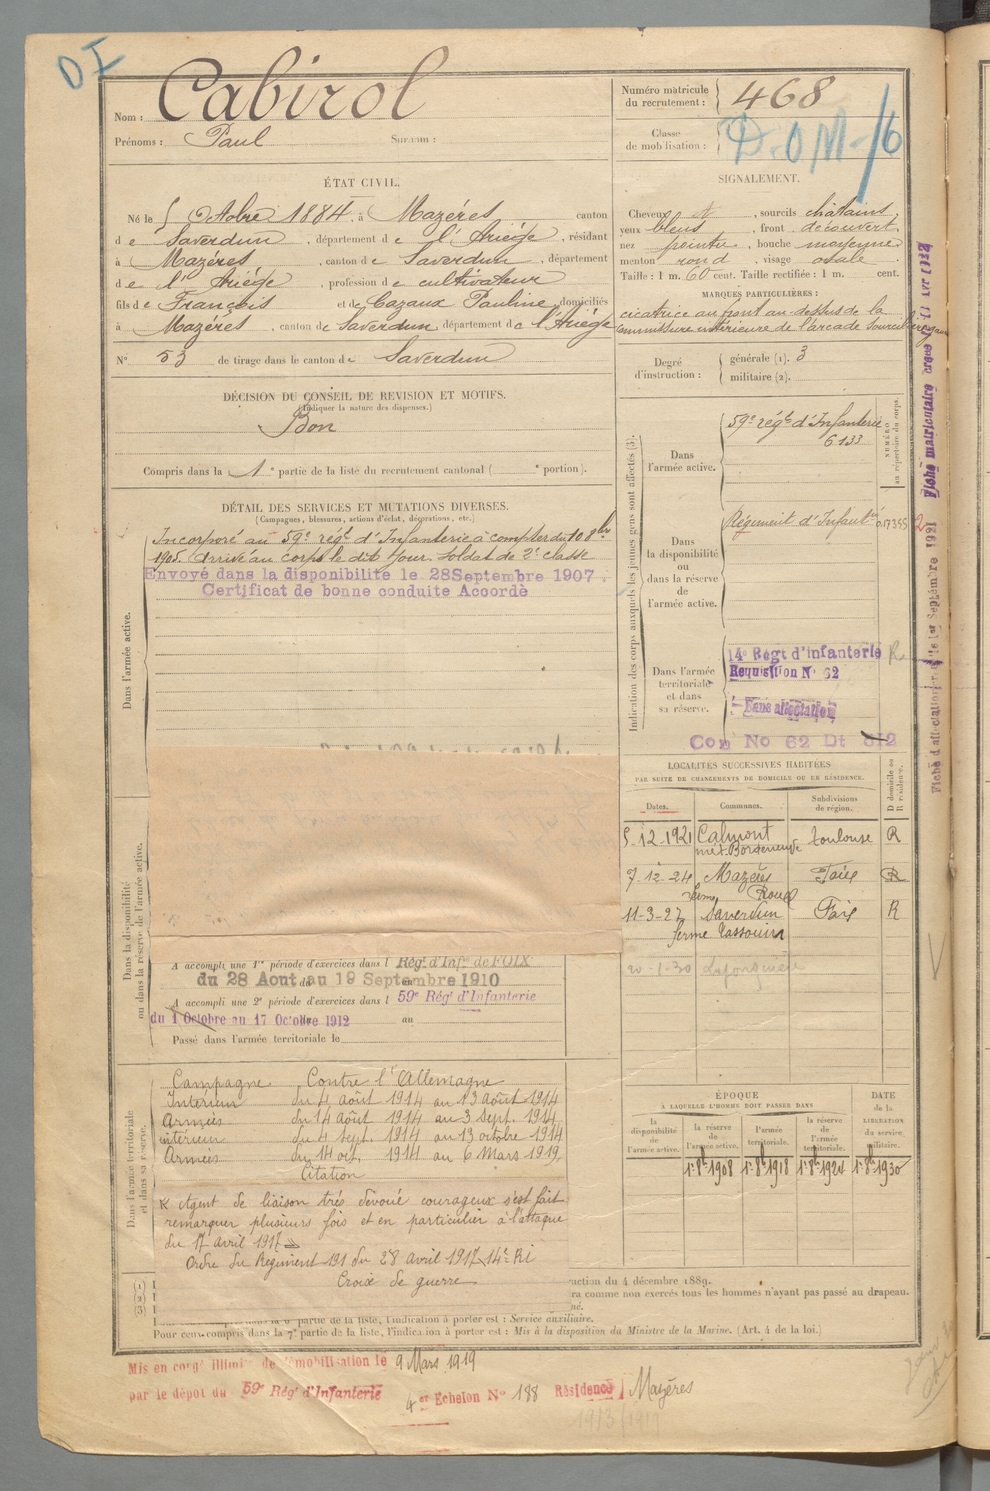 DI
Nom : Cabirol
Prénoms : Paul Surnom :
Numéro matricule du recrutement : 468
Classe de mobilisation :
D.O.M-/6
ÉTAT CIVIL.
Né le 5 Octobre 1884, à Mazéres canton
de Saverdun, département de l'Ariége, résidant
à Mazéres, canton de Saverdun, département
de l'Ariége, profession de cultivateur
fils de François et de Cazaux Pauline, domiciliés
à Mazéres, canton de Saverdun, département de l'Ariége
N° 53 de tirage dans le canton de Saverdun
SIGNALEMENT.
Cheveux et, sourcils châtains,
yeux bleus, front découvert
nez pointu, bouche moyenne
menton rond, visage ovale.
Taille : 1 m. 60 cent. Taille rectifiée : 1 m. cent.
MARQUES PARTICULIÈRES :
cicatrice au front au-dessus de la
commissure extérieure de l'arcade
Degré d'instruction :
générale (1). 3
militaire (2).
DÉCISION DU CONSEIL DE REVISION ET MOTIFS.
(Indiquer la nature des dispenses.)
Bon
Compris dans la 1e partie de la liste du recrutement cantonal ( e portion).
DÉTAIL DES SERVICES ET MUTATIONS DIVERSES.
(Campagnes, blessures, actions d'éclat, décorations, etc.)
Dans l'armée active.
Incorporé au 59e régt d'Infanterie à compter du 10 8bre
1905. Arrivé au corps le dit jour. Soldat de 2e classe
Envoyé dans la disponibilité le 28 Septembre 1907.
Certificat de bonne conduite Accordè
Indication des corps auxquels les jeunes gens sont affectés (3).
Dans l'armée active.
59e régt d'Infanterie
6133
NUMÉRO au répertoire du corps.
Dans la disponibilité ou dans la réserve de l'armée active.
Régiment d'Infantrie 017395
Dans l'armée territoriale et dans sa réserve.
14e Regt d'infanterie R
Requisition N° 62
Sans affectation
Con No 62 Dt 812
LOCALITÉS SUCCESSIVES HABITÉES
PAR SUITE DE CHANGEMENTS DE DOMICILE OU DE RÉSIDENCE.
Dates. Communes. Subdivisions de région. D domicile ou R résidence.
5-12-1921 Calmont Toulouse R
7-12-24 Mazères Foix R
ferme Roux
11-3-27 Saverdun Foix R
20-1-30
Dans la disponibilité ou dans la réserve de l'armée active.
A accompli une 1re période d'exercices dans l Rég. d'Infie de FOIX
du 28 Aout au 19 Septembre 1910
A accompli une 2e période d'exercices dans l 59e Rég' d'Infanterie
du 1 Octobre au 17 Octobre 1912 au
Passé dans l'armée territoriale le
Dans l'armée territoriale et dans sa réserve.
Campagne Contre l'Allemagne
Intérieur du 4 août 1914 au 13 août 1914
Armées du 14 août 1914 au 3 Sept. 1914
intérieur du 4 Sept. 1914 au 13 octobre 1914
Armées du 14 oct. 1914 au 6 Mars 1919
Citation
Agent de liaison très dévoué courageux s'est fait
remarquer plusieurs fois et en particulier à l'attaque
du 17 avril 1917
Ordre du Régiment 191 du 28 avril 1917 14e Ri
Croix de guerre
ÉPOQUE
A LAQUELLE L'HOMME DOIT PASSER DANS
la disponibilité de l'armée active.
la réserve de l'armée active.
l'armée territoriale.
la réserve de l'armée territoriale.
DATE de la LIBÉRATION du service militaire.
1r 8b 1908 1r 8b 1918 1r 8b 1924 1r 8b 1930
(1)
(2)
(3)
uction du 4 décembre 1889.
ra comme non exercés tous les hommes n'ayant pas passé au drapeau.
partie de la liste, l'indication à porter est : Service auxiliaire.
Pour ceux compris dans la 7e partie de la liste, l'indication à porter est : Mis à la disposition du Ministre de la Marine. (Art. 4 de la loi.)
Mis en congé illimité de démobilisation le 9 Mars 1919
par le dépôt du 59e Rég' d'Infanterie 4er Echelon N° 188 Résidence Mazères
19/3/1919
Fiche matriculaire créée le
Fiche d'affectation le 1er Septembre 1921